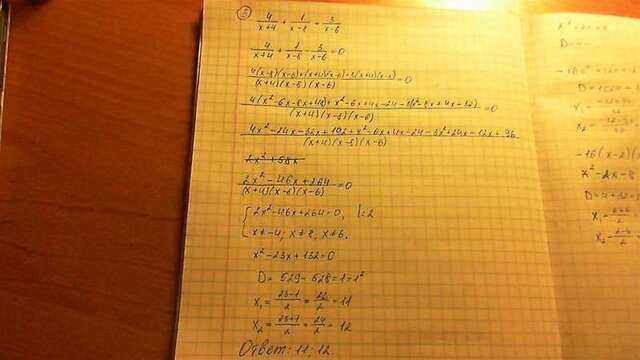 3
4/(x+4) + 1/(x-8) = 3/(x-6)
4/(x+4) + 1/(x-8) - 3/(x-6) = 0
(4(x-8)(x-6)+(x+4)(x-6)-3(x+4)(x-8))/((x+4)(x-8)(x-6)) = 0
(4(x²-6x-8x+48)+x²-6x+4x-24-3(x²-8x+4x-32))/((x+4)(x-8)(x-6)) = 0
(4x²-24x-32x+192+x²-6x+4x-24-3x²+24x-12x+96)/((x+4)(x-8)(x-6))
(2x²-46x+264)/((x+4)(x-8)(x-6)) = 0
{2x²-46x+264=0, |:2
x≠-4; x≠8, x≠6.
x²-23x+132=0
D= 529-528=1=1²
x₁= (23-1)/2 = 22/2 = 11
x₂= (23+1)/2 = 24/2 = 12
Ответ: 11; 12
-16(x-2)(
x²-2x-8
D=4+32=
x₁=
x₂=